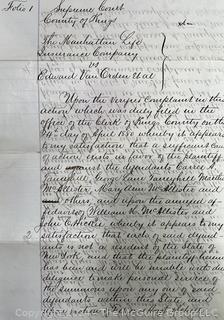 Folio 1
Supreme Court
County of Kings
The Manhattan Life
Insurance Company
vs
Edward Van Orden et al
Upon the verified Complaint in this
action which was duly filed in the
office of the Clerk of Kings County on the
day of April 1880 whereby it appears
to my satisfaction that a sufficient cause
of action exists in favor of the plaintiff
and against the defendants
George
McAllister, Mary Ann McAllister and
others, and upon the annexed af-
fidavits of William H. McAllister and
John C. whereby it appears to my
satisfaction that each of said defend-
ants is not a resident of the State of
New York, and that the plaintiff herein
has been and will be unable with due
diligence to make personal service of
the summons upon any one of said
defendants within this State, and